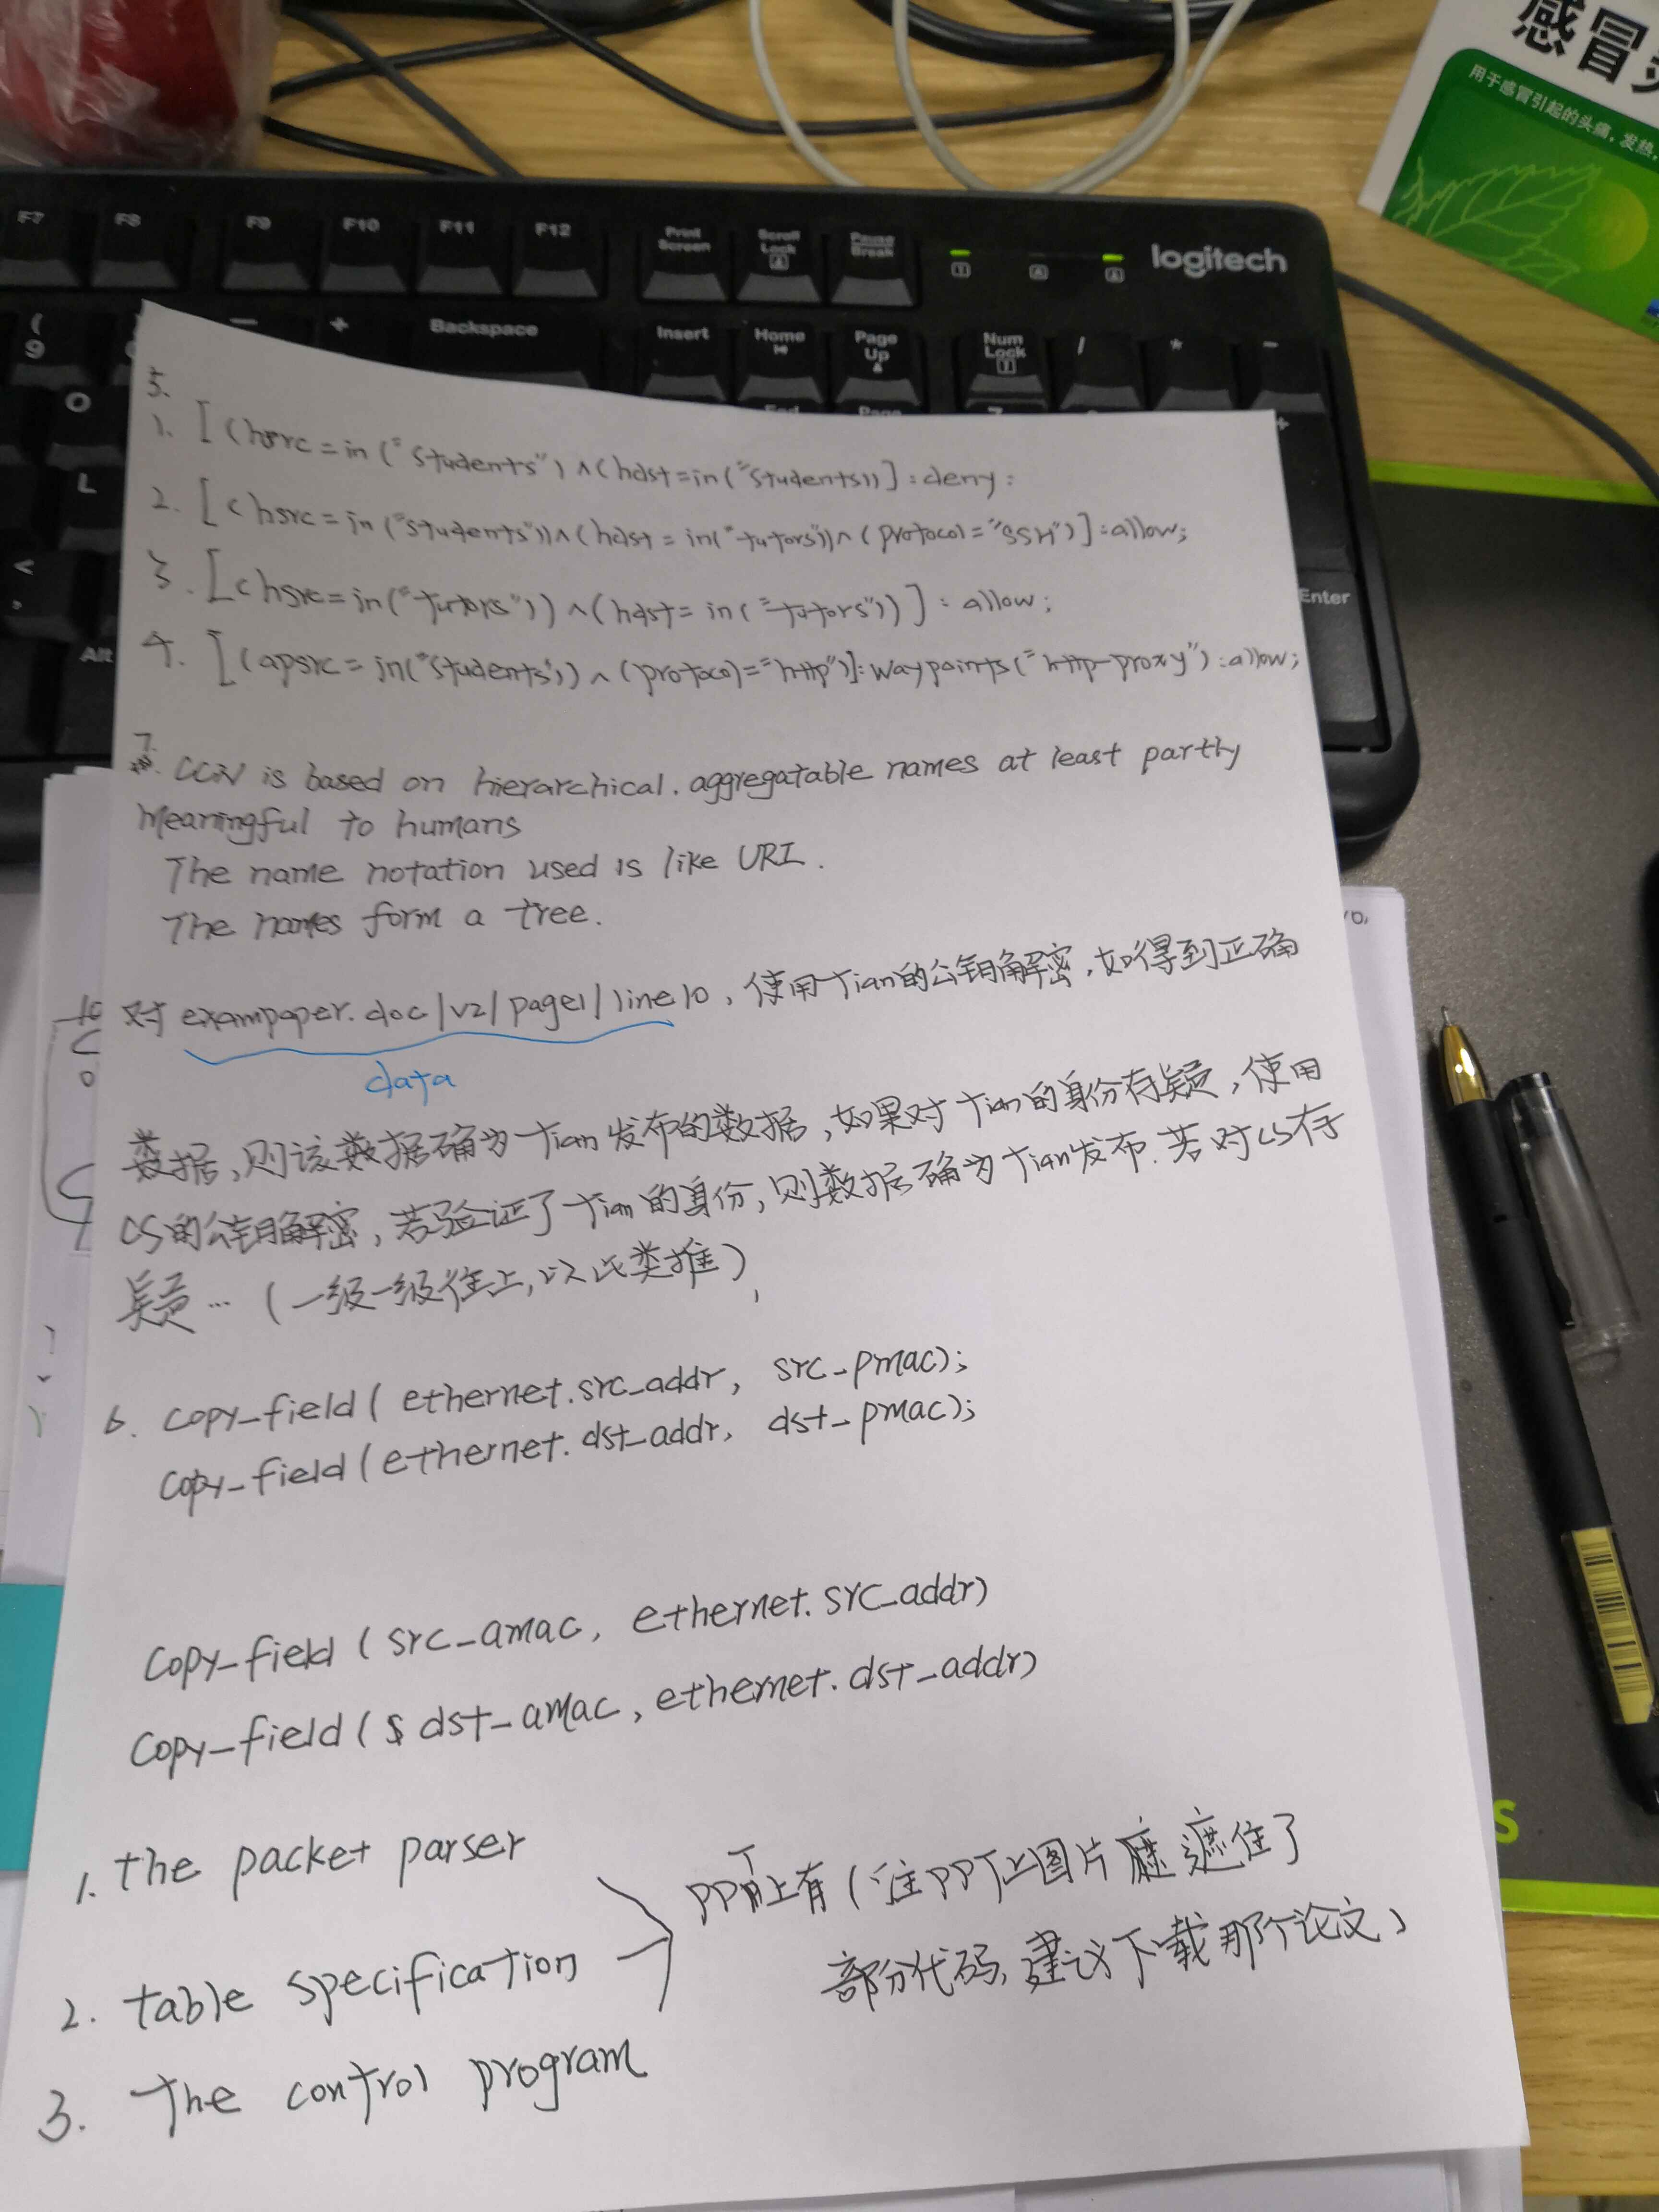 感冒
用于感冒引起的头痛，发热，
F7 F8 F9 F10 F11 F12 Print Screen Scroll Lock Pause Break
logitech
( 9 — + Backspace Insert Home Page Up Num Lock / * -
O
L
<
,
Alt
End
Page
+
Enter
5.
1. [(hsrc=in("students")∧(hdst=in("students))]:deny:
2. [(hsrc=in("students"))∧(hdst=in("tutors))∧(protocol="SSH")]:allow;
3. [(hsrc=in("tutors"))∧(hdst=in("tutors"))]:allow;
4. [(apsrc=in("students"))∧(protocol="http")]:waypoints("http-proxy"):allow;
7.
CCN is based on hierarchical. aggregatable names at least partly
Meaningful to humans
The name notation used is like URI.
The names form a tree.
对 exampaper.doc/v2/page1/line10，使用Tian的公钥解密，如得到正确
data
数据，则该数据确为Tian发布的数据，如果对Tian的身份存疑，使用
CS的公钥解密，若验证了Tian的身份，则数据确为Tian发布.若对CS存
疑…（一级一级往上，以此类推）
6. copy_field(ethernet.src_addr, src_pmac);
copy_field(ethernet.dst_addr, dst_pmac);
copy_field(src_amac, ethernet.src_addr)
copy_field(s dst_amac, ethernet.dst_addr)
1. The packet parser
2. table specification
3. The control program
PPT上有（注PPT上图片遮住了
部分代码，建议下载那个论文）
S